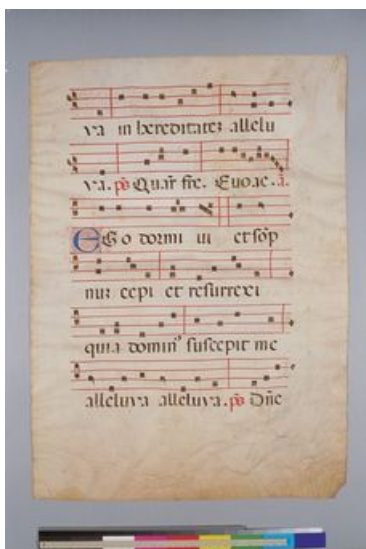 ya in hereditatez allelu
ya. ps Quar fre. Euoae. a.
Ego dormi ui et sop
nuz cepi et resurrexi
quia domin' suscepit me
alleluya alleluya. ps Dne